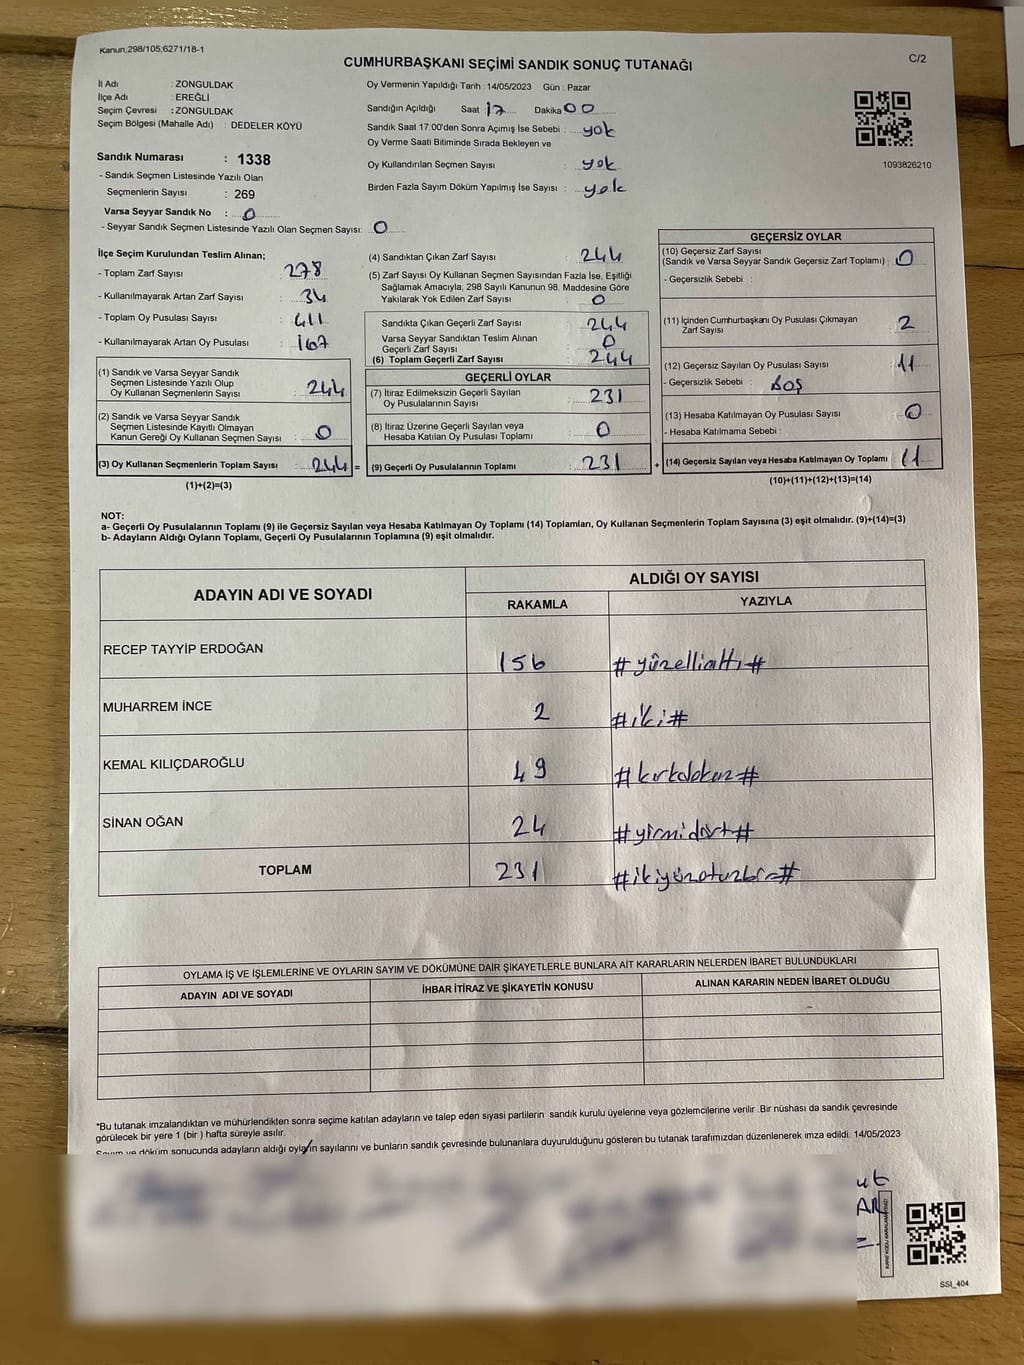 Kanun;298/105;6271/18-1
C/2
CUMHURBAŞKANI SEÇİMİ SANDIK SONUÇ TUTANAĞI
İl Adı : ZONGULDAK
İlçe Adı : EREĞLİ
Seçim Çevresi : ZONGULDAK
Seçim Bölgesi (Mahalle Adı) : DEDELER KÖYÜ
Oy Vermenin Yapıldığı Tarih : 14/05/2023 Gün : Pazar
Sandığın Açıldığı Saat 17 Dakika 00
Sandık Saat 17:00'den Sonra Açımış İse Sebebi : yok
Oy Verme Saati Bitiminde Sırada Bekleyen ve
Oy Kullandırılan Seçmen Sayısı : yok
Birden Fazla Sayım Döküm Yapılmış İse Sayısı : yok
1093826210
Sandık Numarası : 1338
- Sandık Seçmen Listesinde Yazılı Olan
Seçmenlerin Sayısı : 269
Varsa Seyyar Sandık No : 0
- Seyyar Sandık Seçmen Listesinde Yazılı Olan Seçmen Sayısı: 0
İlçe Seçim Kurulundan Teslim Alınan;
- Toplam Zarf Sayısı : 278
- Kullanılmayarak Artan Zarf Sayısı : 34
- Toplam Oy Pusulası Sayısı : 411
- Kullanılmayarak Artan Oy Pusulası : 167
(1) Sandık ve Varsa Seyyar Sandık
Seçmen Listesinde Yazılı Olup
Oy Kullanan Seçmenlerin Sayısı : 244
(2) Sandık ve Varsa Seyyar Sandık
Seçmen Listesinde Kayıtlı Olmayan
Kanun Gereği Oy Kullanan Seçmen Sayısı : 0
(3) Oy Kullanan Seçmenlerin Toplam Sayısı : 244 =
(1)+(2)=(3)
(4) Sandıktan Çıkan Zarf Sayısı : 244
(5) Zarf Sayısı Oy Kullanan Seçmen Sayısından Fazla İse, Eşitliği
Sağlamak Amacıyla; 298 Sayılı Kanunun 98. Maddesine Göre
Yakılarak Yok Edilen Zarf Sayısı : 0
Sandıkta Çıkan Geçerli Zarf Sayısı : 244
Varsa Seyyar Sandıktan Teslim Alınan
Geçerli Zarf Sayısı : 0
(6) Toplam Geçerli Zarf Sayısı : 244
GEÇERLİ OYLAR
(7) İtiraz Edilmeksizin Geçerli Sayılan
Oy Pusulalarının Sayısı : 231
(8) İtiraz Üzerine Geçerli Sayılan veya
Hesaba Katılan Oy Pusulası Toplamı : 0
(9) Geçerli Oy Pusulalarının Toplamı : 231 +
GEÇERSİZ OYLAR
(10) Geçersiz Zarf Sayısı
(Sandık ve Varsa Seyyar Sandık Geçersiz Zarf Toplamı) : 0
- Geçersizlik Sebebi :
(11) İçinden Cumhurbaşkanı Oy Pusulası Çıkmayan
Zarf Sayısı : 2
(12) Geçersiz Sayılan Oy Pusulası Sayısı : 11
- Geçersizlik Sebebi : BOŞ
(13) Hesaba Katılmayan Oy Pusulası Sayısı : 0
- Hesaba Katılmama Sebebi :
(14) Geçersiz Sayılan veya Hesaba Katılmayan Oy Toplamı : 11
(10)+(11)+(12)+(13)=(14)
NOT:
a- Geçerli Oy Pusulalarının Toplamı (9) ile Geçersiz Sayılan veya Hesaba Katılmayan Oy Toplamı (14) Toplamları, Oy Kullanan Seçmenlerin Toplam Sayısına (3) eşit olmalıdır. (9)+(14)=(3)
b- Adayların Aldığı Oyların Toplamı, Geçerli Oy Pusulalarının Toplamına (9) eşit olmalıdır.
ADAYIN ADI VE SOYADI
ALDIĞI OY SAYISI
RAKAMLA YAZIYLA
RECEP TAYYİP ERDOĞAN 156 #yüzellialtı#
MUHARREM İNCE 2 #iki#
KEMAL KILIÇDAROĞLU 49 #kırkdokuz#
SİNAN OĞAN 24 #yirmidört#
TOPLAM 231 #ikiyüzotuzbir#
OYLAMA İŞ VE İŞLEMLERİNE VE OYLARIN SAYIM VE DÖKÜMÜNE DAİR ŞİKAYETLERLE BUNLARA AİT KARARLARIN NELERDEN İBARET BULUNDUKLARI
ADAYIN ADI VE SOYADI İHBAR İTİRAZ VE ŞİKAYETİN KONUSU ALINAN KARARIN NEDEN İBARET OLDUĞU
*Bu tutanak imzalandıktan ve mühürlendikten sonra seçime katılan adayların ve talep eden siyasi partilerin sandık kurulu üyelerine veya gözlemcilerine verilir .Bir nüshası da sandık çevresinde
görülecek bir yere 1 (bir ) hafta süreyle asılır.
Sayım ve döküm sonucunda adayların aldığı oyların sayılarını ve bunların sandık çevresinde bulunanlara duyurulduğunu gösteren bu tutanak tarafımızdan düzenlenerek imza edildi. 14/05/2023
ut
AR
SSI_404